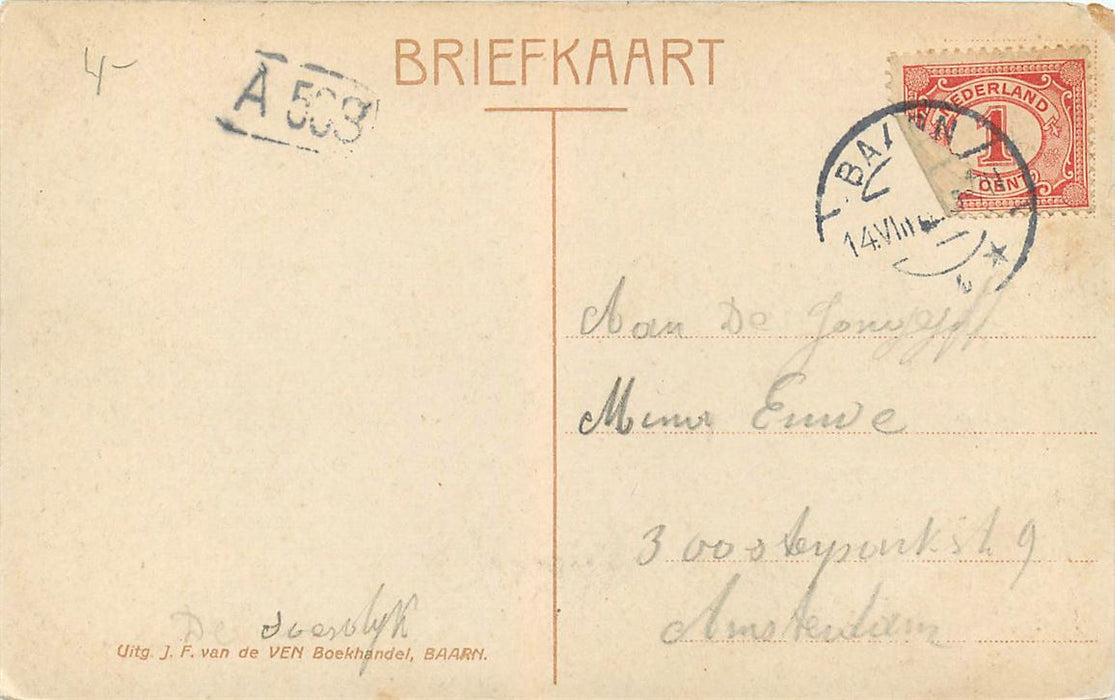 4-
A 503
BRIEFKAART
NEDERLAND
1
CENT
BAARN
14.VIII
Aan De
Euwe
3 oosterparkst 9
Amsterdam
De
Uitg. J. F. van de VEN Boekhandel, BAARN.